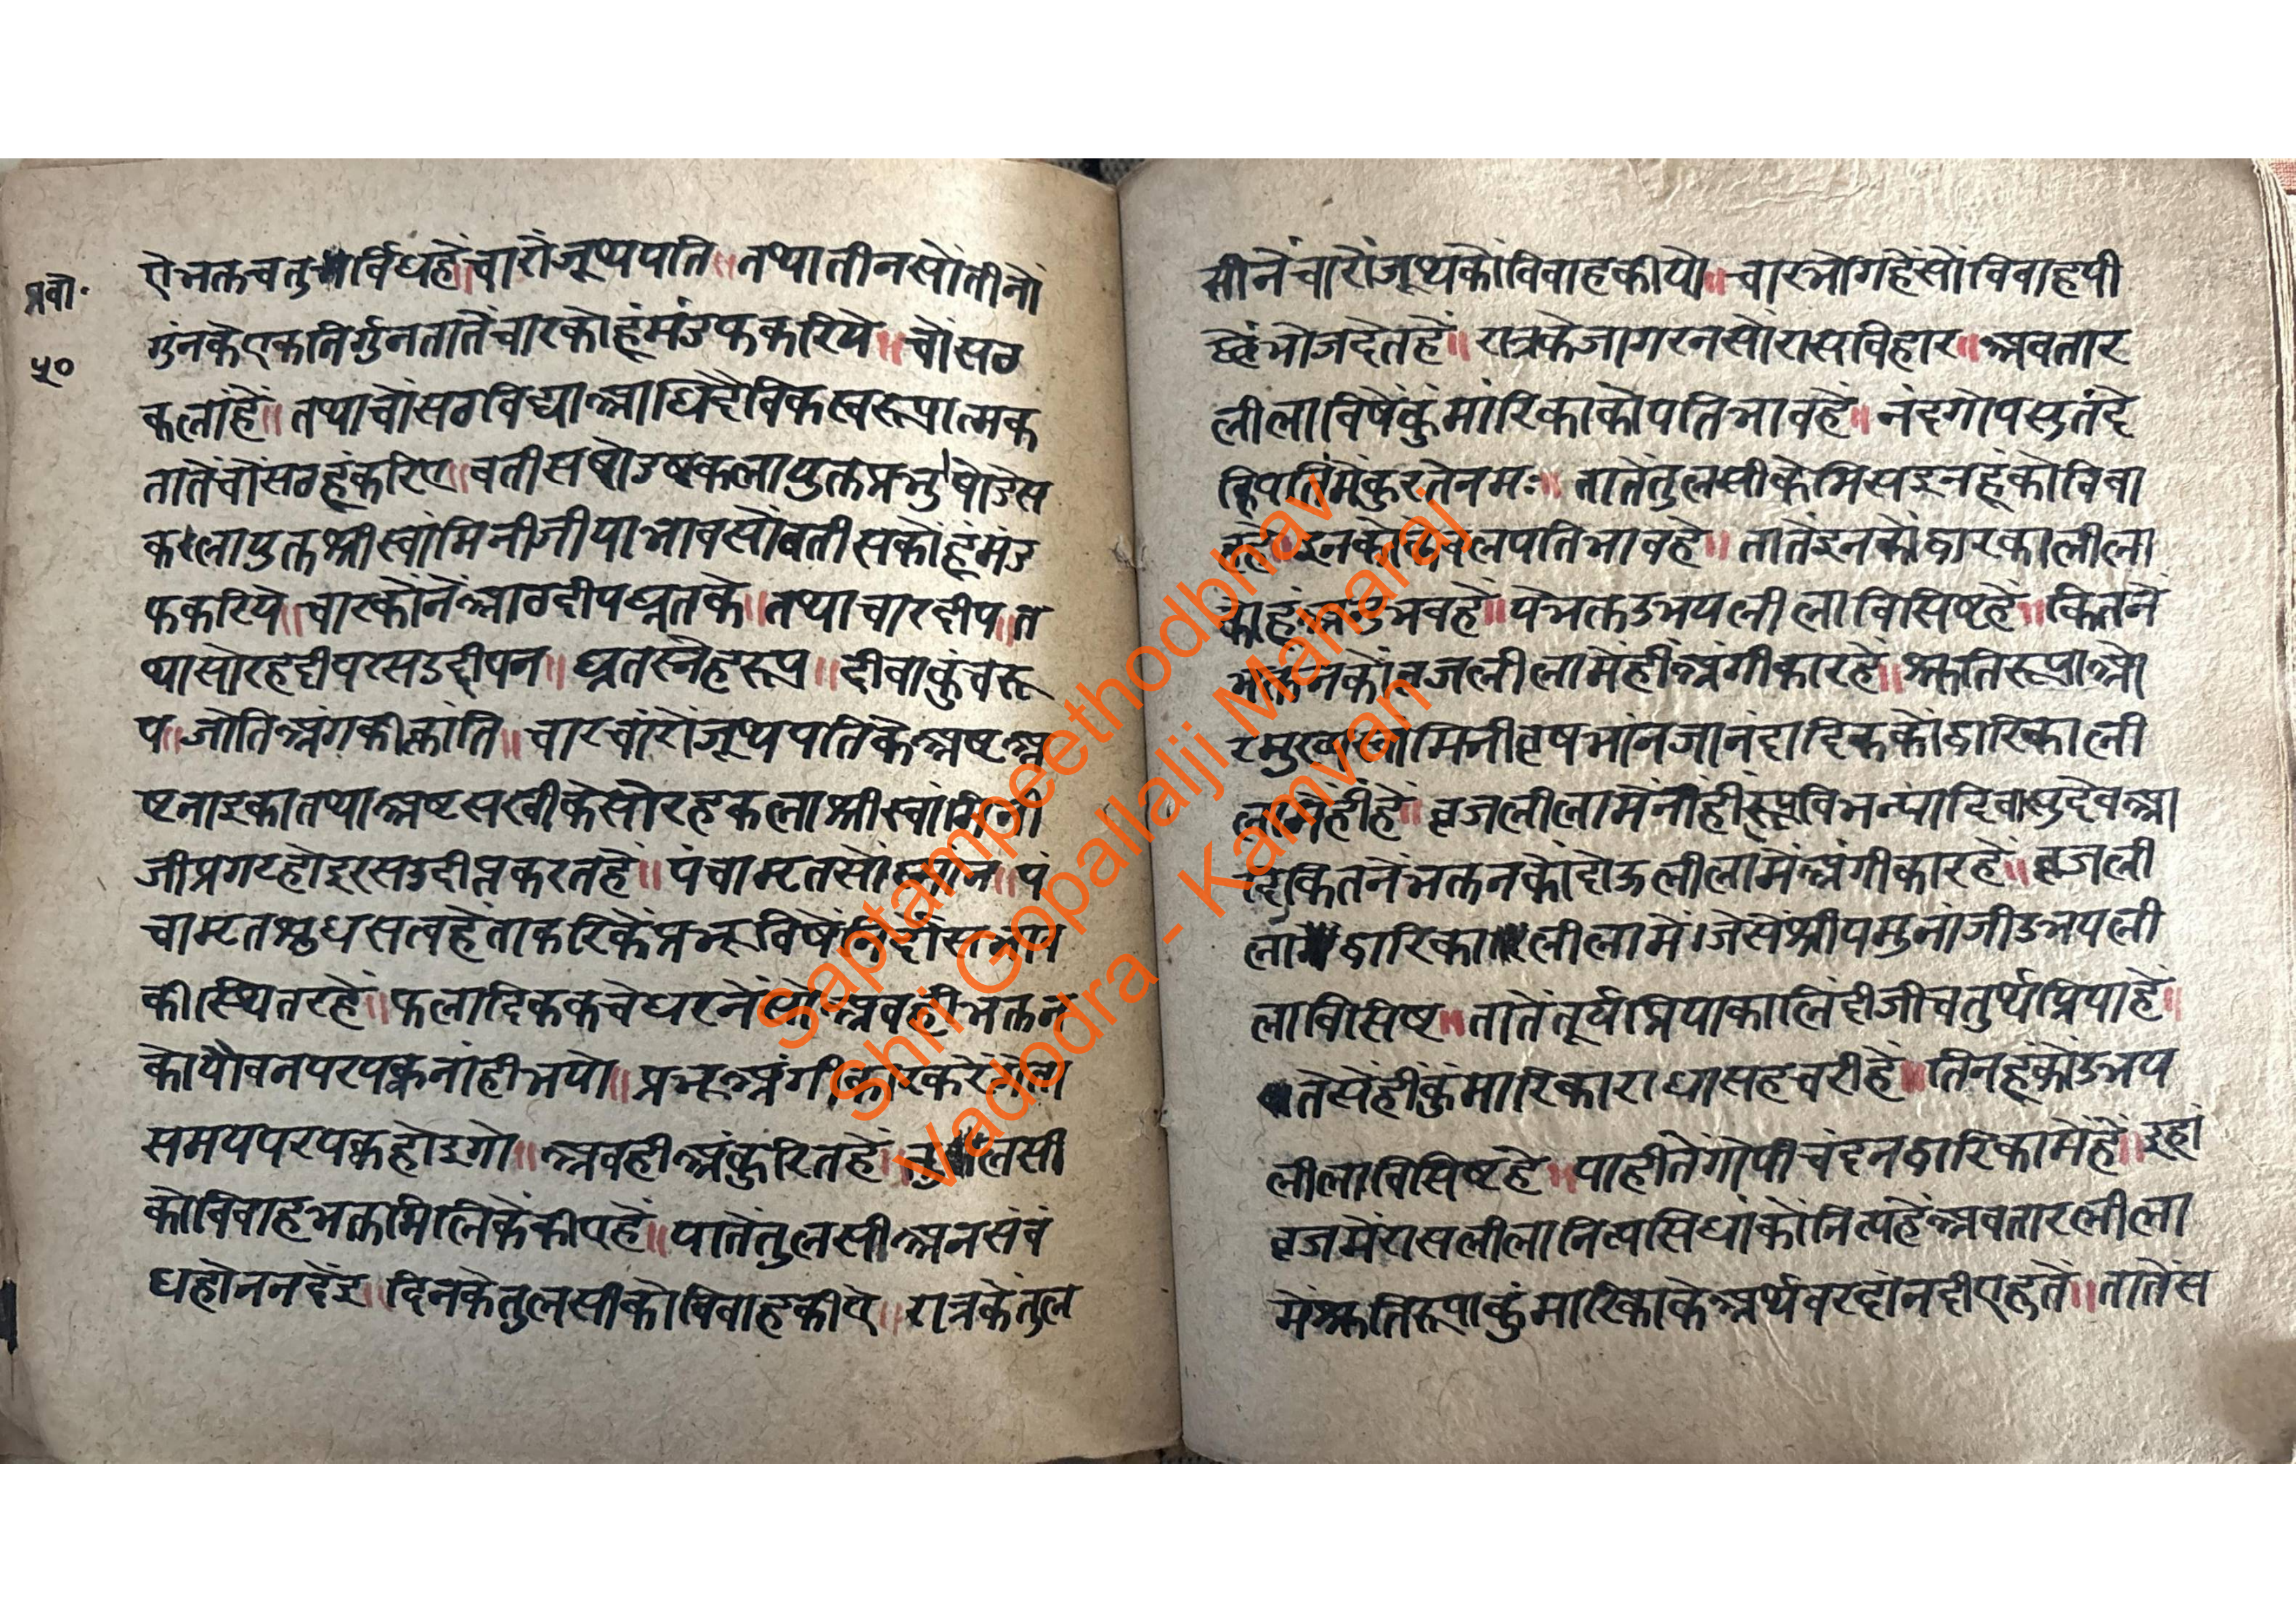 प्रबो॰
५०
ऐभक्तचतुर्विधहें॥चारोंजूथ्थपति॥तथ्थातीनसोंतीनों
गुंनकेएकनिर्गुनतातेंचारकोहूंमंडफकरिये॥चोंसठ
कलांहें॥तथाचोंसठविद्याआधिदैविकस्वरूपात्मक
तातेंचोंसठहूंकरिए॥बतीसषोडषकलायुक्तप्रभु'षोडस
कलायुक्तश्रीस्वांमिनीजीयाभावसोंबतीसकोहूंमंड
फकरिये॥चारकोंनेंआठदीपघ्रतके॥तथ्थाचारदीप॥त
थ्थासोरहदीपरसउद्दीपन॥घ्रतस्नेहरूप॥दीवाकुंचरू
प॥जोतिअंगकीकांति॥चारचांरोंजूथ्थपतिकेअष्टअ
ष्टनाइकातथाअष्टसखीकेसोरहकलाश्रीस्वांमिनी
जीप्रगटहोइरसउदीप्तकरतहें॥पंचामृतसोंस्नान॥पं
चामृतश्रुधसत्वहेंताकरिकेंप्रभूविषें
कीस्थितरहें॥फलादिककचेधरनेंअवहीभक्तन
कोयौवनपरपक्कनांहीभयो॥प्रभूअंगीकारकरेंगेता
समयपरपक्कहोइगो॥अवहीअंकुरितहें॥तुलसी
कोविवाहभक्तमिलिकेंकीएहें॥यातेंतुलसीअनसंबं
धहोननदेंइ॥दिनकेतुलसीकोविवाहकीए॥रात्रकेतुल
सीनेंचारोंजूथकोंविवाहकीयो॥चारभोगहेंसोंविवाहपी
छेंभोजदेतहें॥रात्रकेजागरनसोंरासविहार॥अवतार
लीलाविषेंकुंमांरिकाकोपतिभावहें॥नंदगोपसुतंदे
विपतिंमेंकुरतेनमः॥तातेंतुलसीकेमिसइनहूंकोविवा
हहेंइनकोकेवलपतिभावहे॥तातेंइनकोंद्वारकालीला
कोहूंअनुभवहें॥येभक्तउभयलीलाविसिष्टहें॥कितनें
भक्तनकोंव्रजलीलामेंहींअंगीकारहें॥श्रुतिरूपाओ
रमुख्यस्वामिनीव्रषभांनजानंदादिककोंद्वारिकाली
लामेंहींहें॥व्रजलीलामेंनांही
कितनेंभक्तनकोंदोऊलीलामेंअंगीकारहें॥व्रजली
लाद्वारिकालीलामें।जेसेंश्रीयमुनांजीउभयली
लाविसिष्ट॥तातेंतूर्यप्रियाकालिंदीजीचतुर्थप्रियाहें॥
तेसेंहींकुंमारिकाराधासहचरीहें॥तिनहूंकोउभय
लीलाविसिष्टहे॥याहीतेंगोपीचंदनद्वारिकामेंहें॥इहां
व्रजमेंरासलीलानित्यसिधांकोंनित्यहेंअवतारलीला
मेंश्रुतिरूपाकुंमारिकाकेअर्थवरदांनदीएहतें॥तातेंस